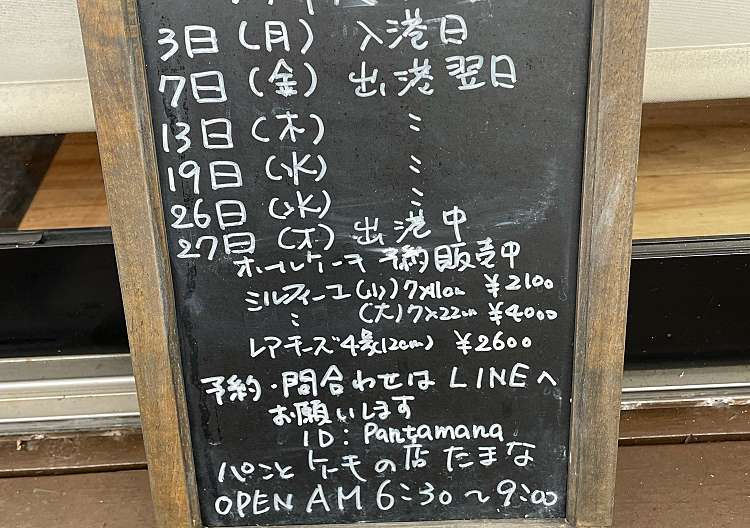 3日(月) 入港日
7日(金) 出港翌日
13日(木) 〃
19日(水) 〃
26日(水) 〃
27日(木) 出港中
ホールケーキ 予約販売中
ミルフィーユ(小)7×11cm ¥2100
〃 (大)7×22cm ¥4000
レアチーズ4号(12cm) ¥2600
予約・問合わせは LINEへ
お願いします
ID: Pantamana
パンとケーキの店たまな
OPEN AM 6:30〜9:00